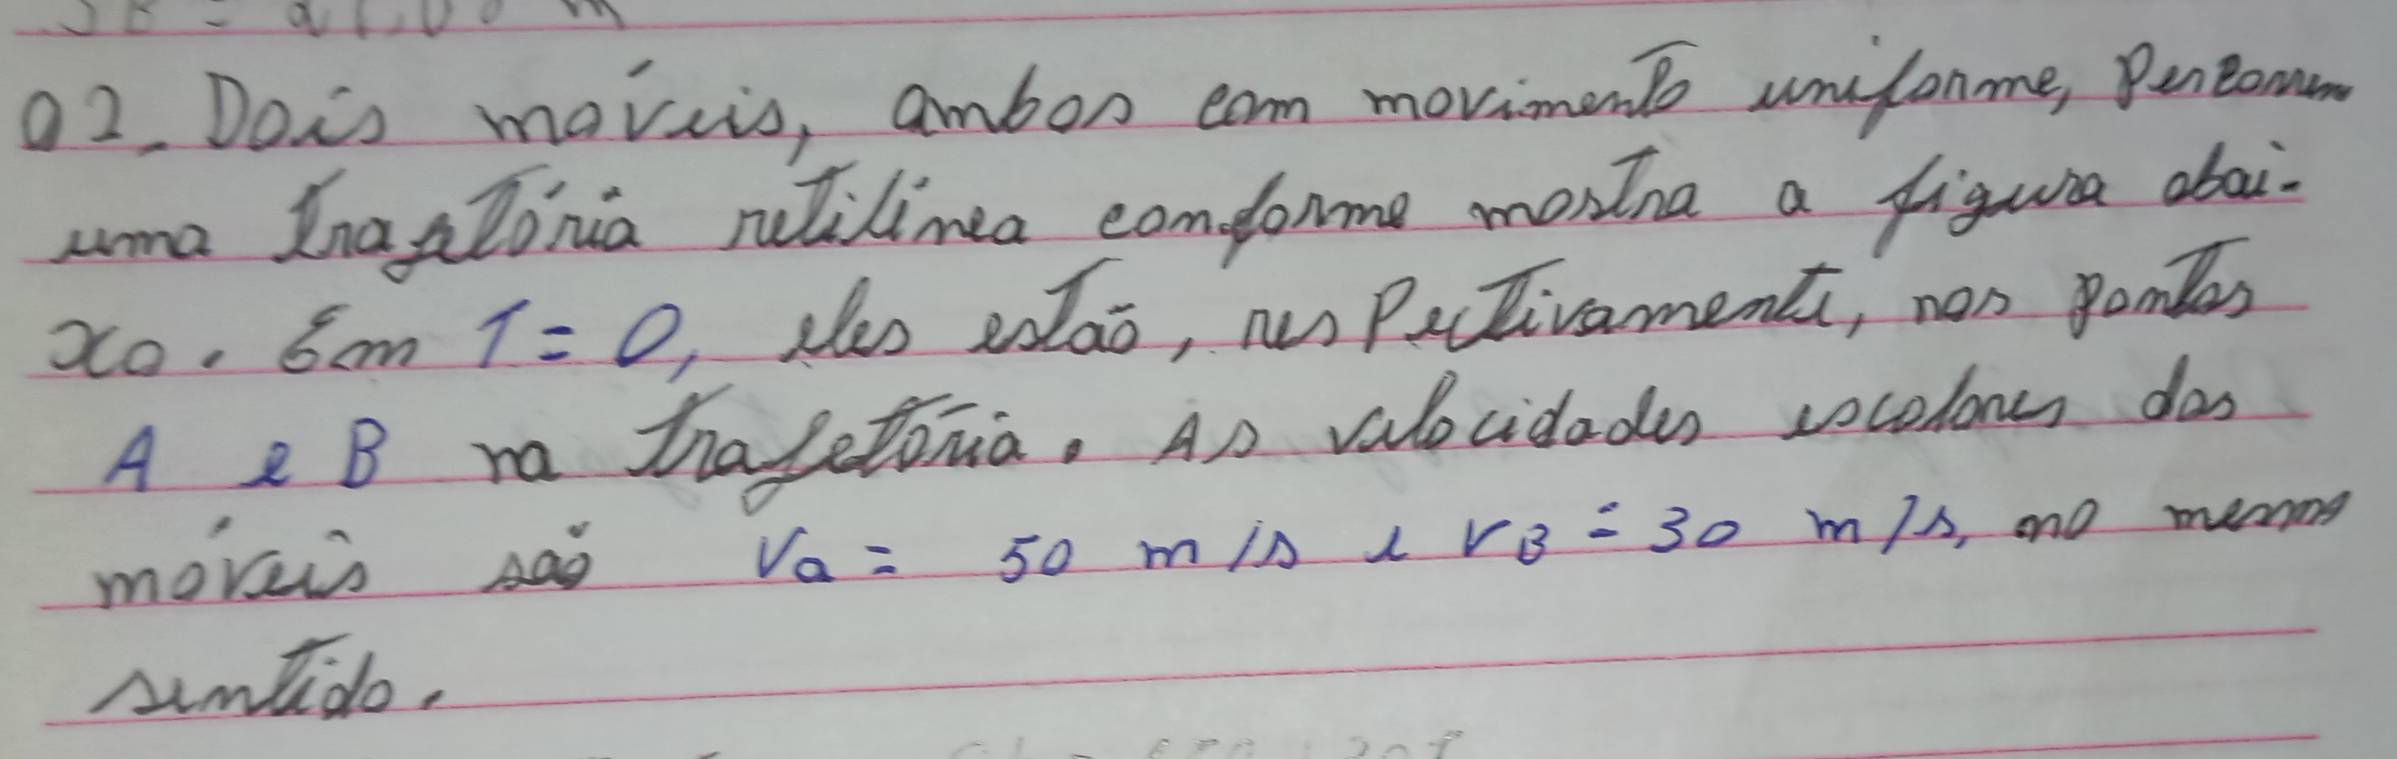 02. Dois móveis, ambos com movimento uniforme, percorrem
uma trajetória retilínea conforme mostra a figura abai-
xo. Em T = 0, eles estão, respectivamente, nos pontos
A e B na trajetória. As velocidades escalares dos
móveis são Va = 50 m/s e VB = 30 m/s, no mesmo
sentido.